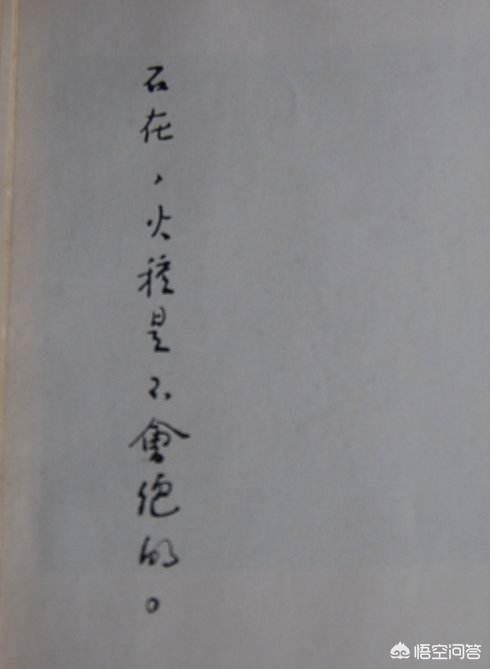 石在，火種是不會絕的。
悟空问答